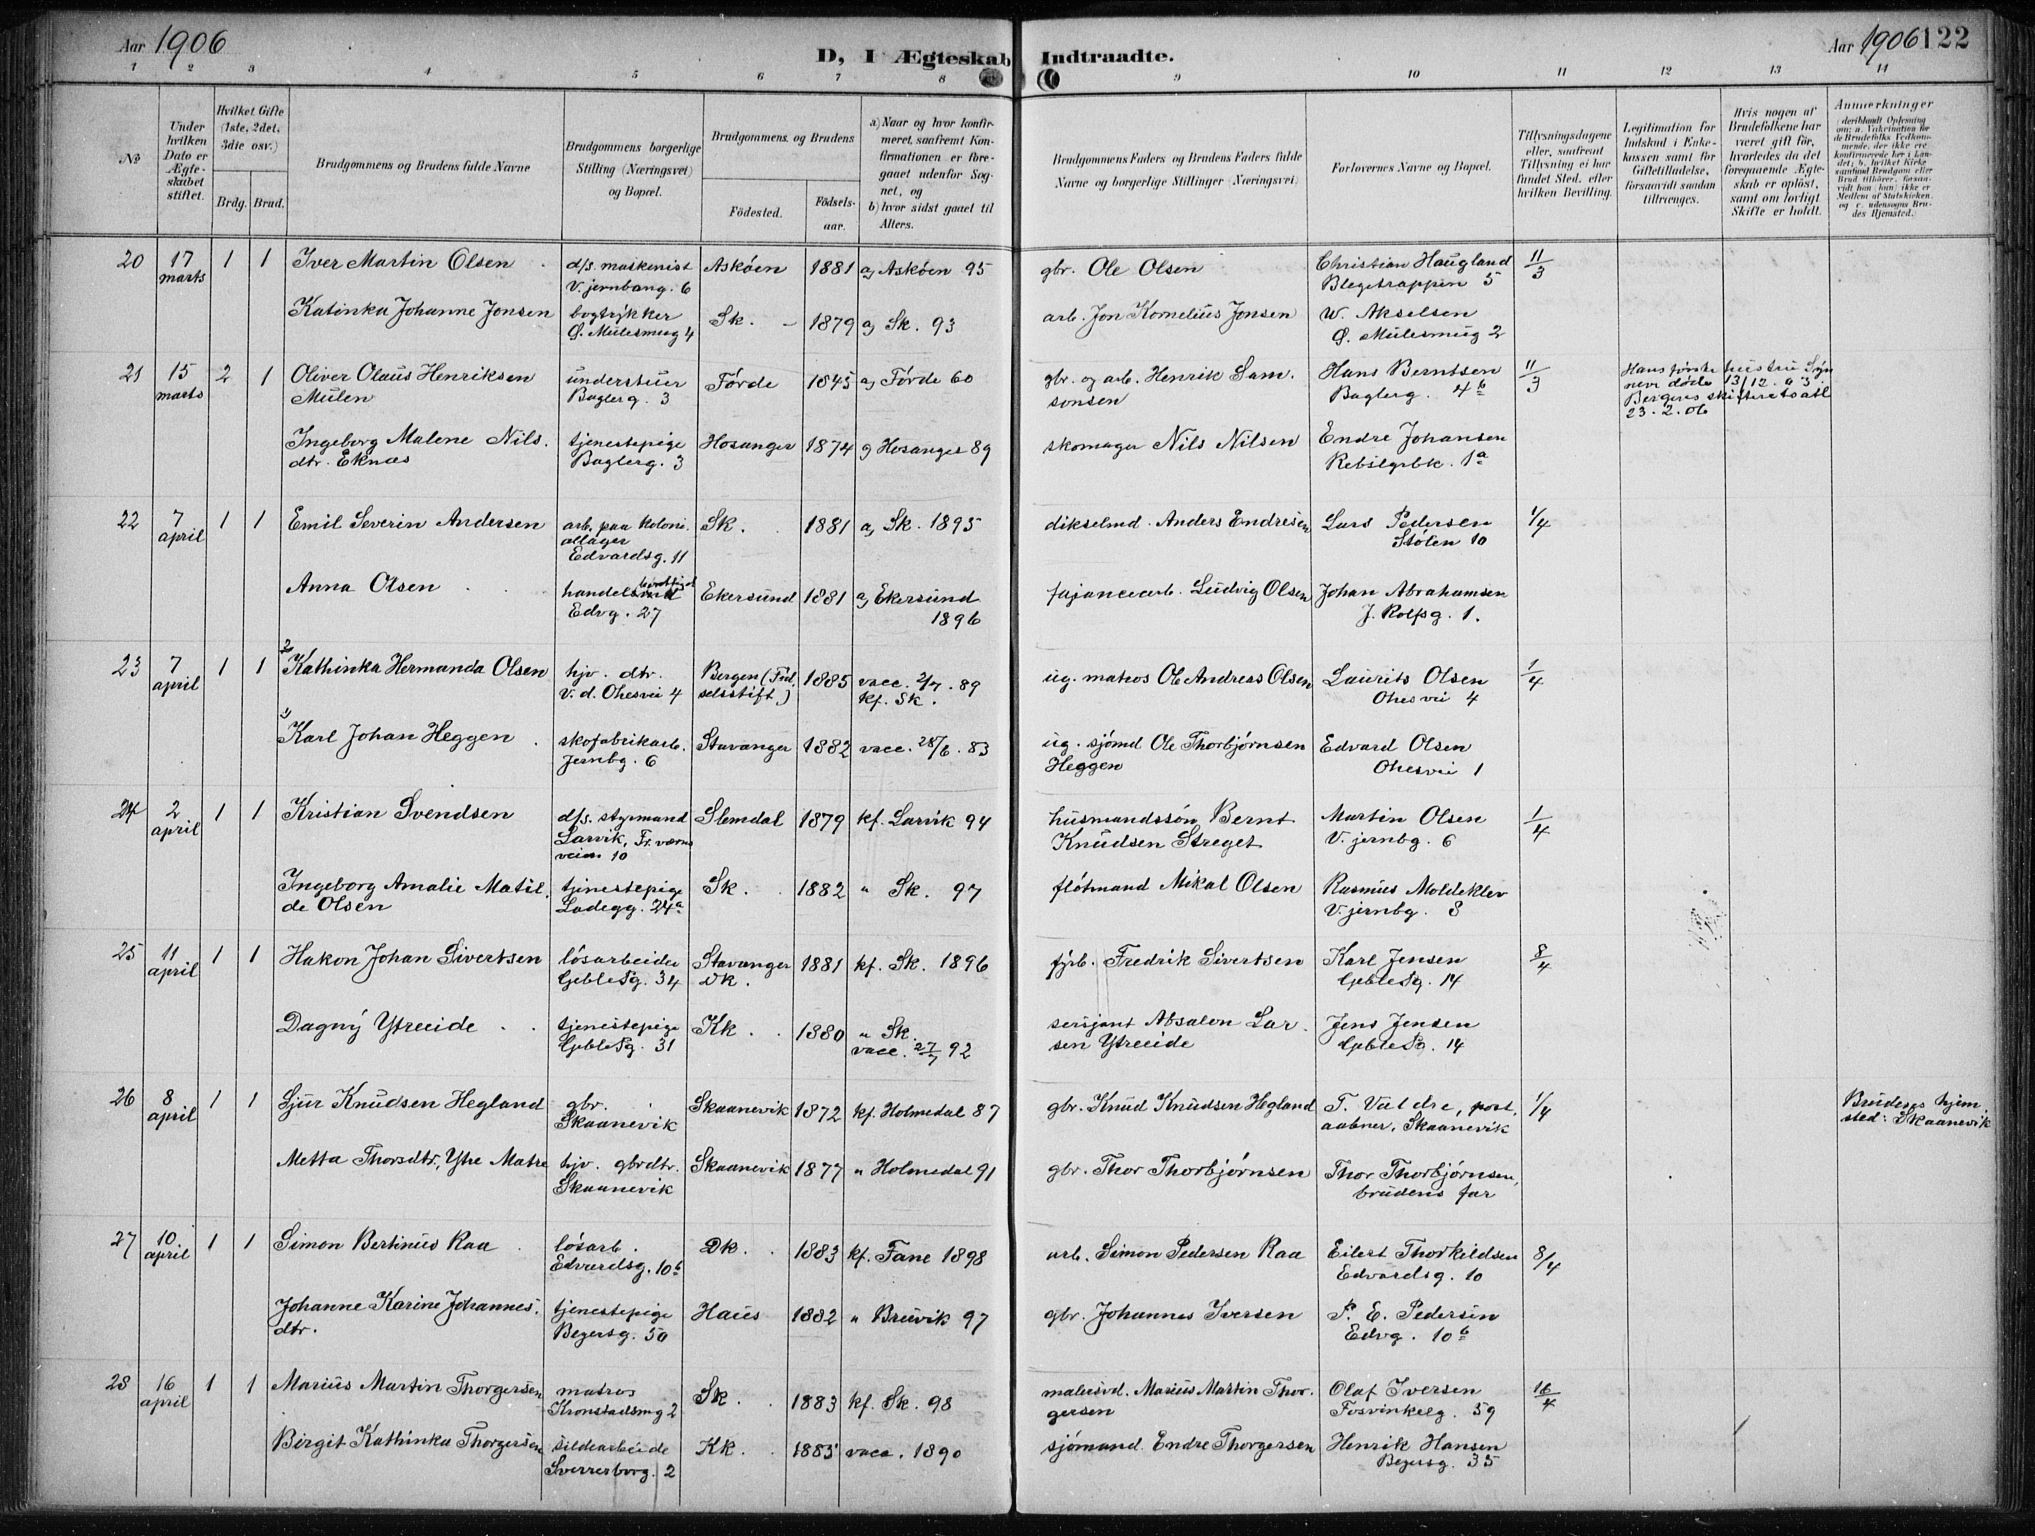 Aar 1906
D, I Ægteskab Indtraadte.
Aar 1906 122
1 2 3 4 5 6 7 8 9 10 11 12 13 14
No
Under hvilken Dato er Ægteskabet stiftet.
Hvilket Gifte (1ste, 2det, 3die osv.)
Brdg. Brud.
Brudgommens og Brudens fulde Navne
Brudgommens borgerlige Stilling (Næringsvei) og Bopæl.
Brudgommens og Brudens
Födested.
Födsels-aar.
a) Naar og hvor konfirmeret, saafremt Konfirmationen er foregaaet udenfor Sognet, og
b) hvor sidst gaaet til Alters.
Brudgommens Faders og Brudens Faders fulde Navne og borgerlige Stillinger (Næringsvei)
Forlovernes Navne og Bopæl.
Tillysningsdagene eller, saafremt Tillysning ei har fundet Sted, efter hvilken Bevilling.
Legitimation for Indskud i Enkekassen samt for Giftetilladelse, forsaavidt saadan tiltrænges.
Hvis nogen af Brudefolkene har været gift för, hvorledes da det foregaaende Ægteskab er oplöst, samt om lovligt Skifte er holdt.
Anmerkninger
20 17 marts 1 1 Iver Martin Olsen d/s. maskenist V. jernbaneg. 6 Askøen 1881 a) Askøen 95 gbr. Ole Olsen Christian Haugland 5 11/3
Katinka Johanne Jonsen bogtrykker Ø. Mulesmug 4 Sk. 1879 a) Sk. 93 arb. Jon Kornelius Jonsen W. Akselsen Ø. Mulesmug 2
21 15 marts 2 1 Oliver Olaus Henriksen Mulen understuer Baglerg. 3 Førde 1845 a) Førde 60 gbr. og arb. Henrik Samsonsen Hans Berntsen Baglerg. 4b 11/3 Hans første hustru Synneve døde 13/12.03. Bergens skifteretsatt 23.2.06
Ingeborg Malene Nilsdtr. Eknæs tjenestepige Baglerg. 3 Hosanger 1874 a) Hosanger 89 skomager Nils Nilsen Endre Johansen 1a
22 7 april 1 1 Emil Severin Andersen arb. paa koloniallager Edvardsg. 11 Sk. 1881 a) Sk. 1895 dikselmd. Anders Endresen Lars Pedersen Stølen 10 1/4
Anna Olsen Edvg. 27 Ekersund 1881 a) Ekersund 1896 fajancearb. Ludvig Olsen Johan Abrahamsen J. Rolfsg. 1.
23 7 april 1 1 2 Kathinka Hermanda Olsen hjv. dtr. V. d. Ohesvei 4 Bergen (Fødselsstift.) 1885 vacc. 2/7. 89 kf. Sk. ug. matros Ole Andreas Olsen Laurits Olsen Ohesvei 4 1/4
1 Karl Johan Heggen skofabrikarb. Jernbg. 6 Stavanger 1882 vacc. 28/6. 83 ug. sjømd Ole Thorbjørnsen Heggen Edvard Olsen Ohesvei 1
24 2 april 1 1 Kristian Svendsen d/s. styrmand Larvik, Fr. værns veien 10 Slemdal 1879 kf. Larvik 94 husmandssøn Bernt Knudsen Streget Martin Olsen V. jernbg. 6 1/4
Ingeborg Amalie Matilde Olsen tjenestepige Ladegg. 24a Sk. 1882 " Sk. 97 fløtmand Mikal Olsen Rasmus Moldeklev V. jernbg. 8
25 11 april 1 1 Hakon Johan Sivertsen løsarbeider Geblesg. 34 Stavanger DK. 1881 kf. Sk. 1896 fyrb. Fredrik Sivertsen Karl Jensen Geblesg. 14 8/4
Dagny Ytreeide tjenestepige Geblesg. 31 Kk. 1880 " Sk. vacc. 27/7 92 sersjant Absalon Larsen Ytreeide Jens Jensen Geblesg. 14
26 8 april 1 1 Sjur Knudsen Hegland gbr. Skaanevik Skaanevik 1872 kf. Holmedal 87 gbr. Knud Knudsen Hegland T. Valdre, postaabner, Skaanevik 1/4 Brudens hjemsted: Skaanevik
Metta Thorsdtr, Ytre Matre hjv. gbrdtr. Skaanevik Skaanevik 1877 " Holmedal 91 gbr. Thor Thorbjørnsen Thor Thorbjørnsen, brudens far
27 10 april 1 1 Simon Bertinus Raa løsarb. Edvardsg. 10b Dk. 1883 kf. Fane 1898 arb. Simon Pedersen Raa Eilert Thorkildsen Edvardsg. 10 8/4
Johanne Karine Johannesdtr. tjenestepige Beyersg. 50 Haus 1882 " Bruvik 97 gbr. Johannes Iversen P. E. Pedersen Edvg. 10b
28 16 april 1 1 Marius Martin Thorgersen matros Kronstadsmg 2 Sk. 1883 kf. Sk. 98 malersvd. Marius Martin Thorgersen Olaf Iversen Fosvinkelg. 59 16/4
Birgit Kathinka Thorgersen sildearbeide Sverresborg. 2 Kk. 1885 vacc. 1890 sjømand Endre Thorgersen Henrik Hansen Beyersg. 35